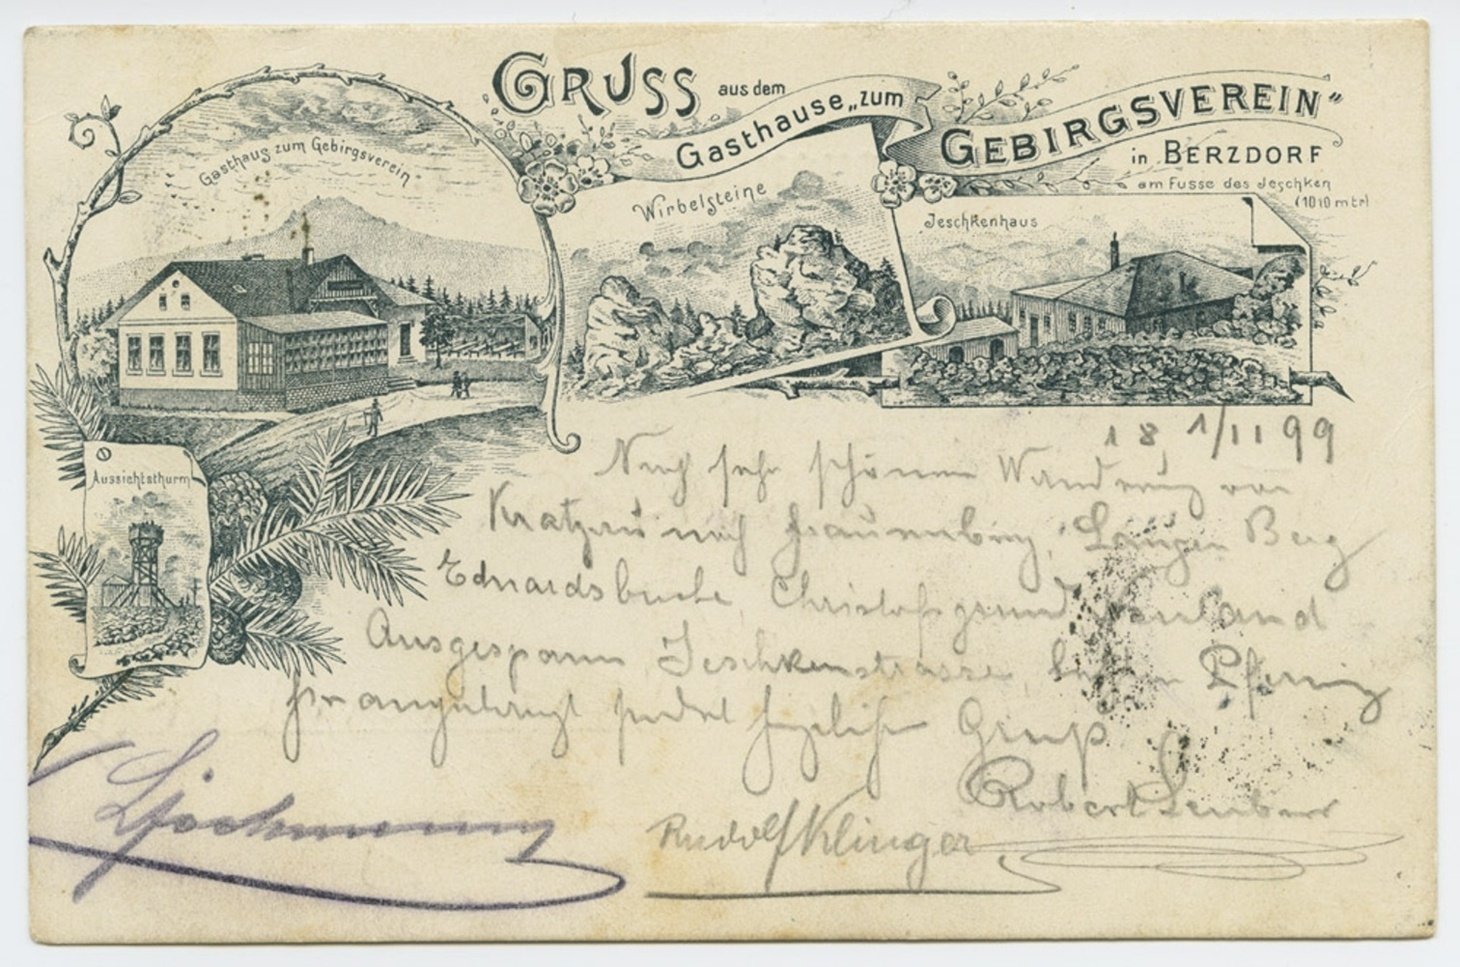 GRUSS aus dem
Gasthause „zum
GEBIRGSVEREIN“
in BERZDORF
am Fusse des Jeschken
(1010 mtr)
Gasthaus zum Gebirgsverein
Wirbelsteine
Jeschkenhaus
Aussichtsthurm
18 1/11 99
Nach sehr schönen Wanderung von
Kratzau nach Langen Berg
Eduardsbuche, Christofsgrund, Neuland
Ausgespann, Jeschkenstrasse,
sendet Gruß
Robert
Rudolf Klinger